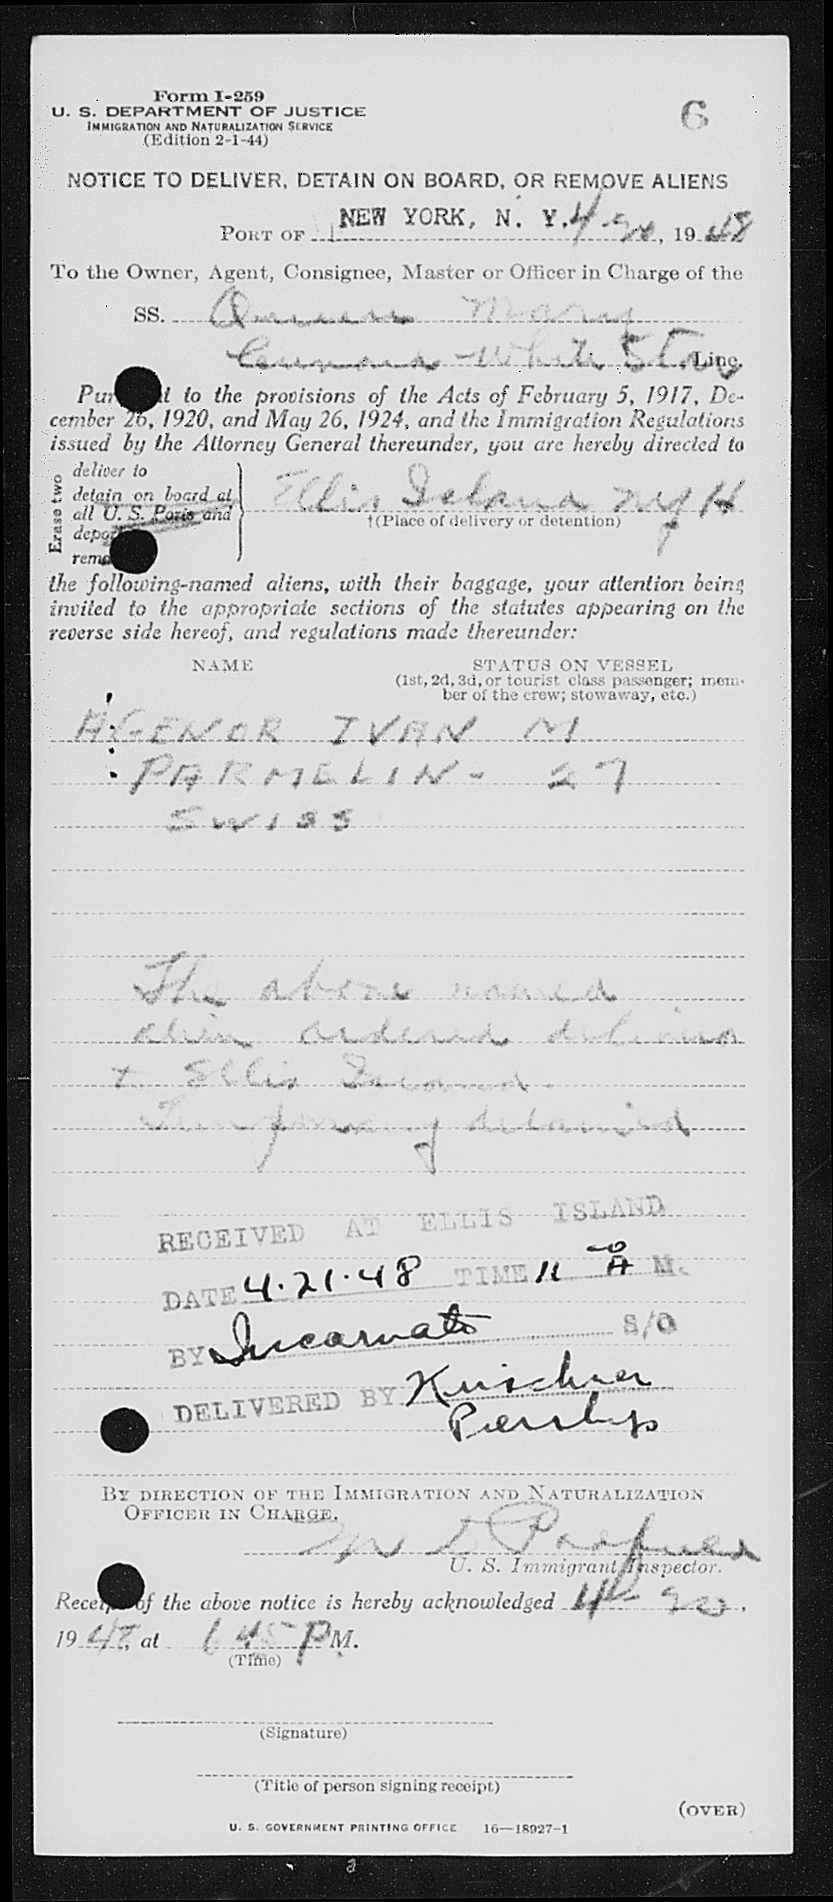 Form I-259
U. S. DEPARTMENT OF JUSTICE
IMMIGRATION AND NATURALIZATION SERVICE
(Edition 2-1-44)
6
NOTICE TO DELIVER, DETAIN ON BOARD, OR REMOVE ALIENS
PORT OF NEW YORK, N. Y. 4-20, 1948
To the Owner, Agent, Consignee, Master or Officer in Charge of the
SS. Queen Mary
Cunard White Star Line.
Pur t to the provisions of the Acts of February 5, 1917, De-
cember 26, 1920, and May 26, 1924, and the Immigration Regulations
issued by the Attorney General thereunder, you are hereby directed to
Erase two
deliver to
detain on board at
all U. S. Ports and
depo
remo
Ellis Island NYH
†(Place of delivery or detention)
the following-named aliens, with their baggage, your attention being
invited to the appropriate sections of the statutes appearing on the
reverse side hereof, and regulations made thereunder:
NAME
STATUS ON VESSEL
(1st, 2d, 3d, or tourist class passenger; mem-
ber of the crew; stowaway, etc.)
AGENOR IVAN M
PARMELIN - 27
SWISS
The above named
alien ordered
t Ellis Island
Temporary detained
RECEIVED AT ELLIS ISLAND
DATE 4.21.48 TIME 11 A M.
BY Incarnato S/O
DELIVERED BY Kirschner
By DIRECTION OF THE IMMIGRATION AND NATURALIZATION
OFFICER IN CHARGE.
U. S. Immigrant Inspector.
Receipt of the above notice is hereby acknowledged 4-20,
1948, at 6 45 PM.
(Time)
(Signature)
(Title of person signing receipt)
(OVER)
U. S. GOVERNMENT PRINTING OFFICE 16—18927-1